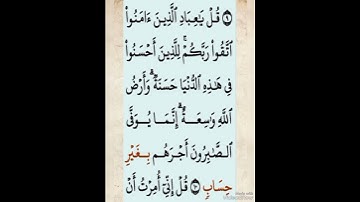 ٩ قُلْ يَٰعِبَادِ ٱلَّذِينَ ءَامَنُوا۟
ٱتَّقُوا۟ رَبَّكُمْ ۚ لِلَّذِينَ أَحْسَنُوا۟
فِى هَٰذِهِ ٱلدُّنْيَا حَسَنَةٌ ۗ وَأَرْضُ
ٱللَّهِ وَٰسِعَةٌ ۗ إِنَّمَا يُوَفَّى
ٱلصَّٰبِرُونَ أَجْرَهُم بِغَيْرِ
حِسَابٍ ١٠ قُلْ إِنِّىٓ أُمِرْتُ أَنْ